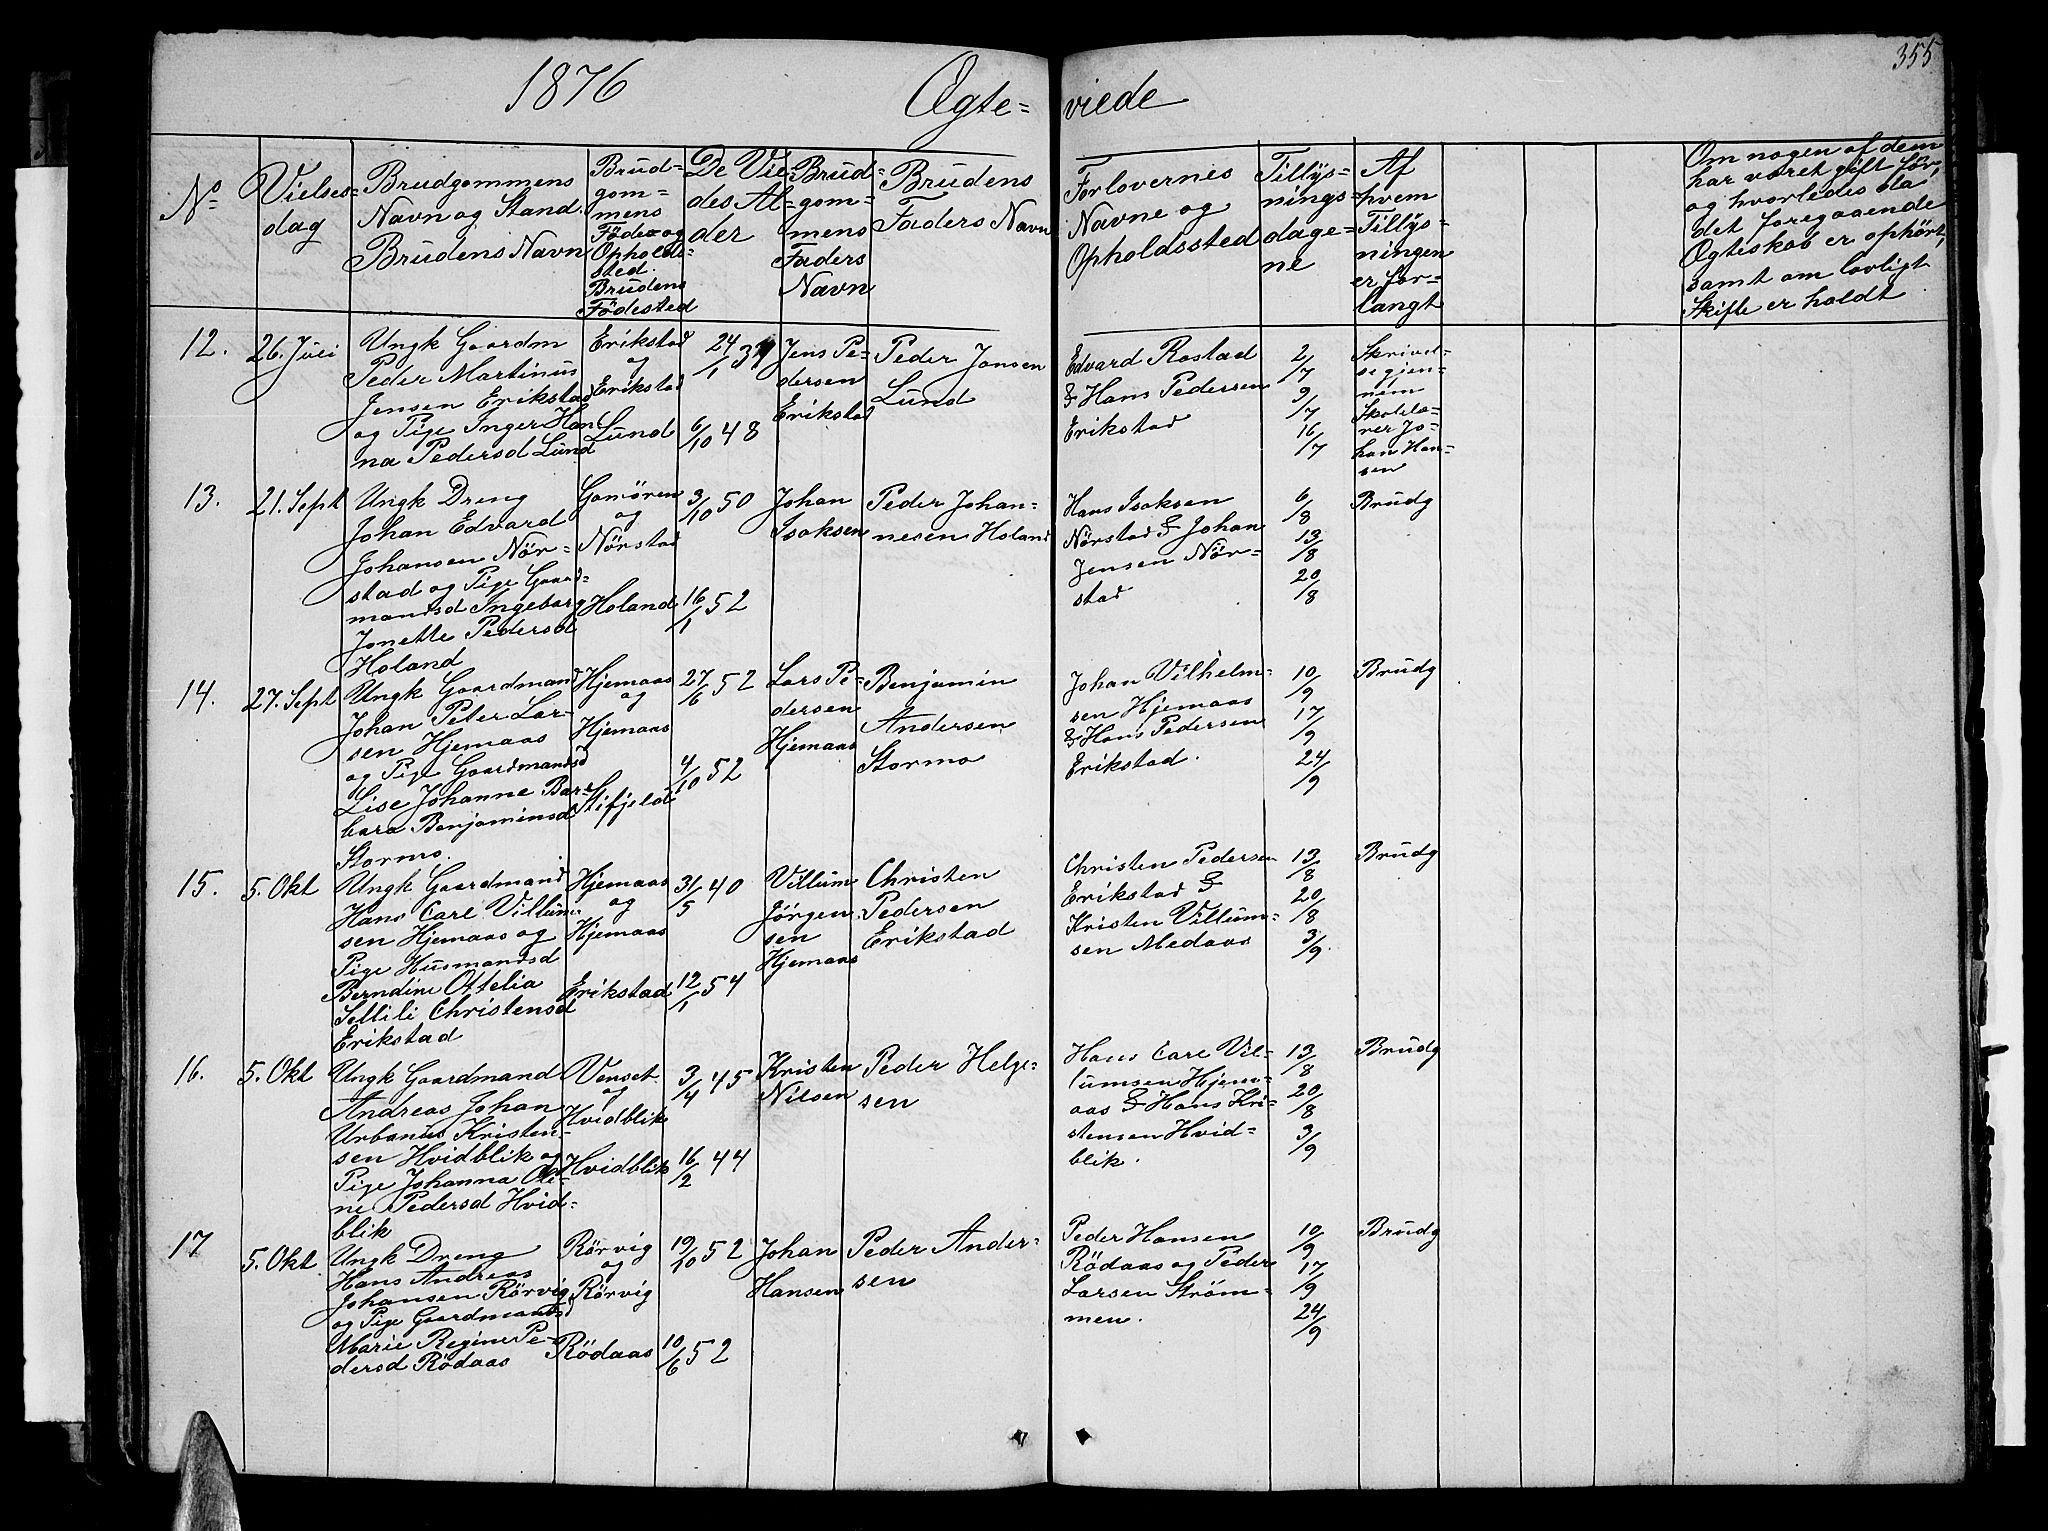 1876
Ægte=
viede
355
No
Vielses=
dag
Brudgommens
Navn og Stand
Brudens Navn
Brud=
gom=
mens
Föde= og
Opholds=
sted.
Brudens
Födested
De Vie=
des Al=
der
Brud=
gom=
mens
Faders
Navn
Brudens
Faders Navn
Forlovernes
Navne og
Opholdssted
Tillys=
nings=
dage=
ne
Af
hvem
Tillys=
ningen
er for=
langt
Om nogen af dem
har været gift för,
og hvorledes da
det foregaaende
Ægteskab er ophört,
samt om lovligt
Skifte er holdt
12.
26. Juli
Ungk Gaardm
Peder Martinus
Jensen Erikstad
og Pige Inger Han
na Pedersd Lund
Erikstad
og
Erikstad
Lund
24/1
6/10 48
Jens Pe=
dersen
Erikstad
Peder Jensen
Lund
Edvard Rostad
& Hans Pedersen
Erikstad
2/7
9/7
16/7
Skrivel=
se gjen=
nem
Skolelæ=
rer Jo=
han Han=
sen
13.
21. Sept
Ungk Dreng
Johan Edvard
Johansen Nör=
stad og Pige Gaard=
mandsd Ingeborg
Jonette Pedersd
Holand
Gamören
og
Nörstad
Holand
3/10 50
16/1 52
Johan
Isaksen
Peder Johan=
nesen Holand
Hans Isaksen
Nörstad & Johan
Jensen Nör=
stad
6/8
13/8
20/8
Brudg
14.
27. Sept
Ungk Gaardmand
Johan Peter Lar=
sen Hjemaas
og Pige Gaardmandsd
Lise Johanne Bar=
bara Benjaminsd
Stormo.
Hjemaas
og
Hjemaas
Stifjeld
27/6 52
4/10 52
Lars Pe=
dersen
Hjemaas
Benjamin
Andersen
Stormo
Johan Vilhelm=
sen Hjemaas
& Hans Pedersen
Erikstad.
10/9
17/9
24/9
Brudg
15.
5. Okt
Ungk Gaardmand
Hans Carl Villum=
sen Hjemaas og
Pige Husmandsd
Berndine Ottelia
Sellili Christensd
Erikstad
Hjemaas
og
Hjemaas
Erikstad
31/5 40
12/1 54
Villum
Jörgen
sen
Hjemaas
Christen
Pedersen
Erikstad
Christen Pedersen
Erikstad &
Kristen Villum=
sen Medaas
13/8
20/8
3/9.
Brudg
16.
5. Okt
Ungk Gaardmand
Andreas Johan
Urbanus Kristen=
sen Hvidblik og
Pige Johanna Oli=
ne Pedersd Hvid=
blik
Venset
og
Hvidblik
Hvidblik
3/4 45
16/2 44
Kristen
Nilsen
Peder Helge=
sen
Hans Carl Vil=
lumsen Hjem=
aas & Hans Kri=
stensen Hvid=
blik.
13/8
20/8
3/9
Brudg
17
5. Okt
Ungk Dreng
Hans Andreas
Johansen Rörvig
og Pige Gaardmandsd
Marie Regine Pe=
dersd Rödaas
Rörvig
og
Rörvig
Rödaas
19/10 52
10/6 52
Johan
Hansen
Peder Ander=
sen
Peder Hansen
Rödaas og Peder
Larsen Ström=
men.
10/9
17/9
24/9
Brudg